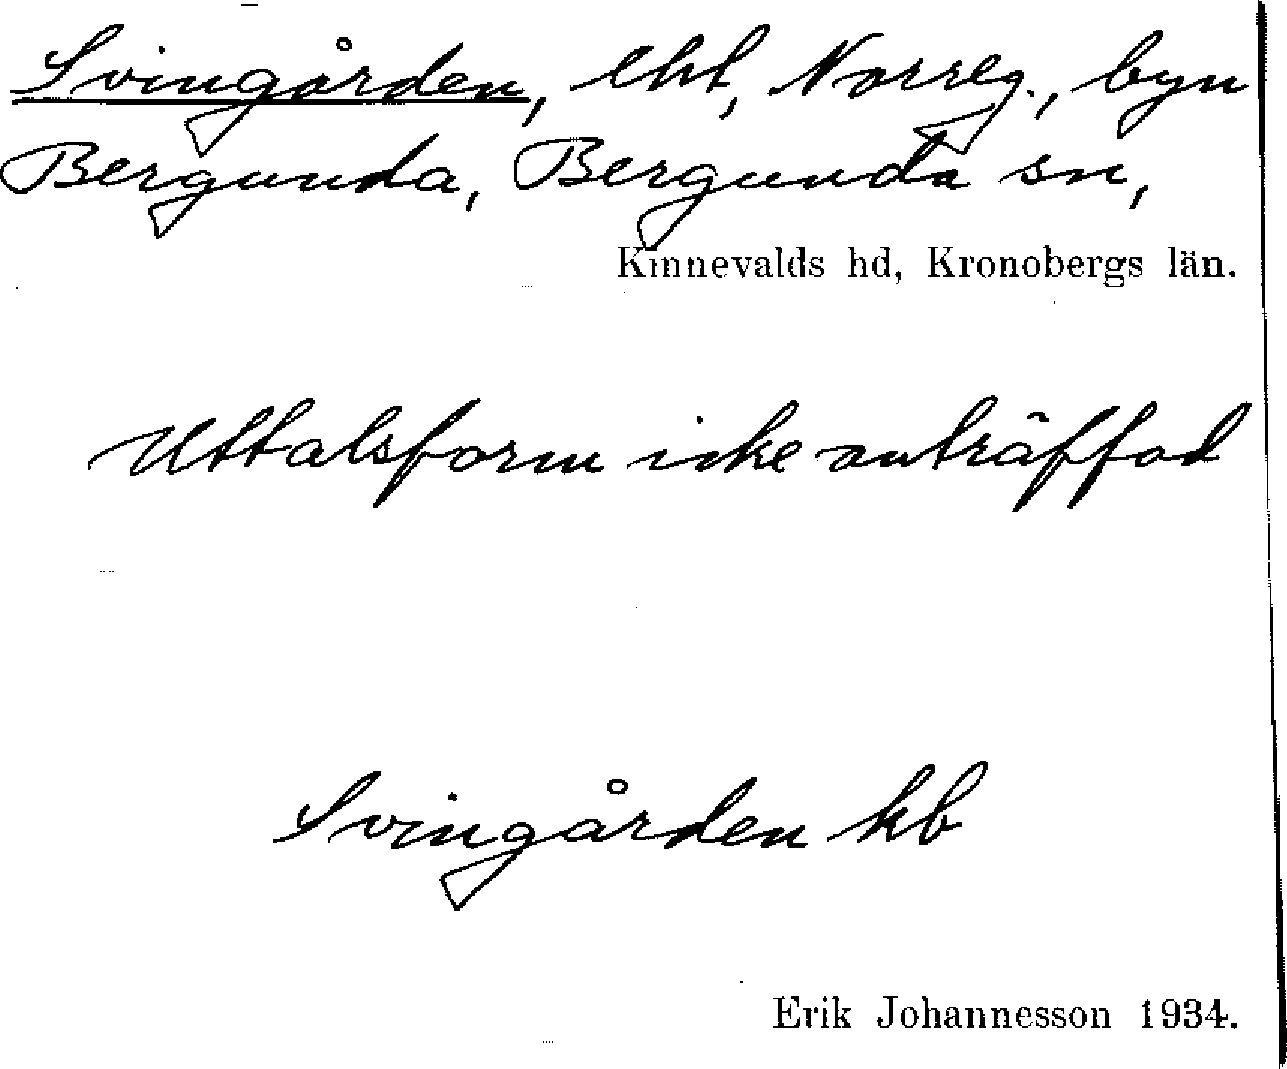 Svingården, lht, Norreg., byn
Bergunda, Bergunda sn,
Kinnevalds hd, Kronobergs län.
Uttalsform icke anträffad
Svingården kb
Erik Johannesson 1934.